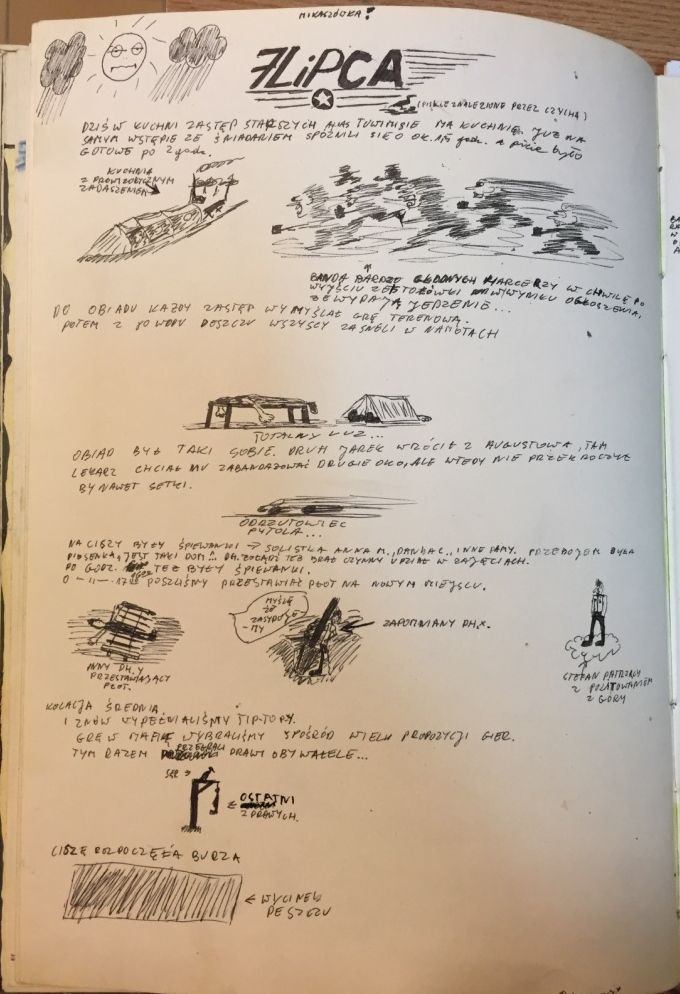 MIKASZÓWKA!
7 LIPCA
(PIÓRKIE ZNALEZIONE PRZEZ CZYCHA)
DZIŚ W KUCHNI ZASTĘP STARSZYCH MA KUCHNIĘ. JUŻ NA
SAMYM WSTĘPIE ZE ŚNIADANIEM SPÓŹNILI SIĘ O OK. godz. a picie było
GOTOWE po 2 godz.
KUCHNIA
Z PROWIZORYCZNYM
ZADASZENIEM
BANDA BARDZO GŁODNYCH HARCERZY W CHWILĘ PO
WYJŚCIU ZE W WYNIKU OGŁOSZENIA,
ŻE WYDAJĄ JEDZENIE...
DO OBIADU KAŻDY ZASTĘP WYMYŚLAŁ GRĘ TERENOWĄ.
POTEM Z POWODU DESZCZU WSZYSCY ZASNĘLI W NAMIOTACH
TOTALNY LUZ...
OBIAD BYŁ TAKI SOBIE. DRUH JAREK WRÓCIŁ Z AUGUSTOWA, TAM
LEKARZ CHCIAŁ MU ZABANDAŻOWAĆ DRUGIE OKO, ALE WTEDY NIE PRZEKROCZYŁ
BY NAWET SETKI.
ODRZUTOWIEC
NA CISZY BYŁY ŚPIEWANKI → SOLISTKA ANNA M., , INNE PANY. PRZEBOJEM BYŁA
PIOSENKA "JEST TAKI DOM". TEŻ BRAŁ CZYNNY UDZIAŁ W ZAJĘCIACH.
PO GODZ. TEŻ BYŁY ŚPIEWANKI.
O -11- 17 POSZLIŚMY PRZESTAWIAĆ PŁOT NA NOWYM MIEJSCU.
MYŚLĘ
ŻE
ZASYPUJE-
-MY
ZAPOMNIANY DH. X.
INNY DH. Y
PRZESTAWIAJĄCY
PŁOT.
STEFAN PATRZĄCY
Z POLITOWANIEM
Z GÓRY
KOLACJA ŚREDNIA.
I ZNÓW WYPEŁNIALIŚMY TIP-TOPY.
GRĘ W MAFIĘ WYBRALIŚMY SPOŚRÓD WIELU PROPOZYCJI GIER.
TYM RAZEM PRZEGRALI PRAWI OBYWATELE...
SĘP →
← OSTATNI
Z PRAWYCH.
CISZĘ ROZPOCZĘŁA BURZA
← WYCINEK
DESZCZU